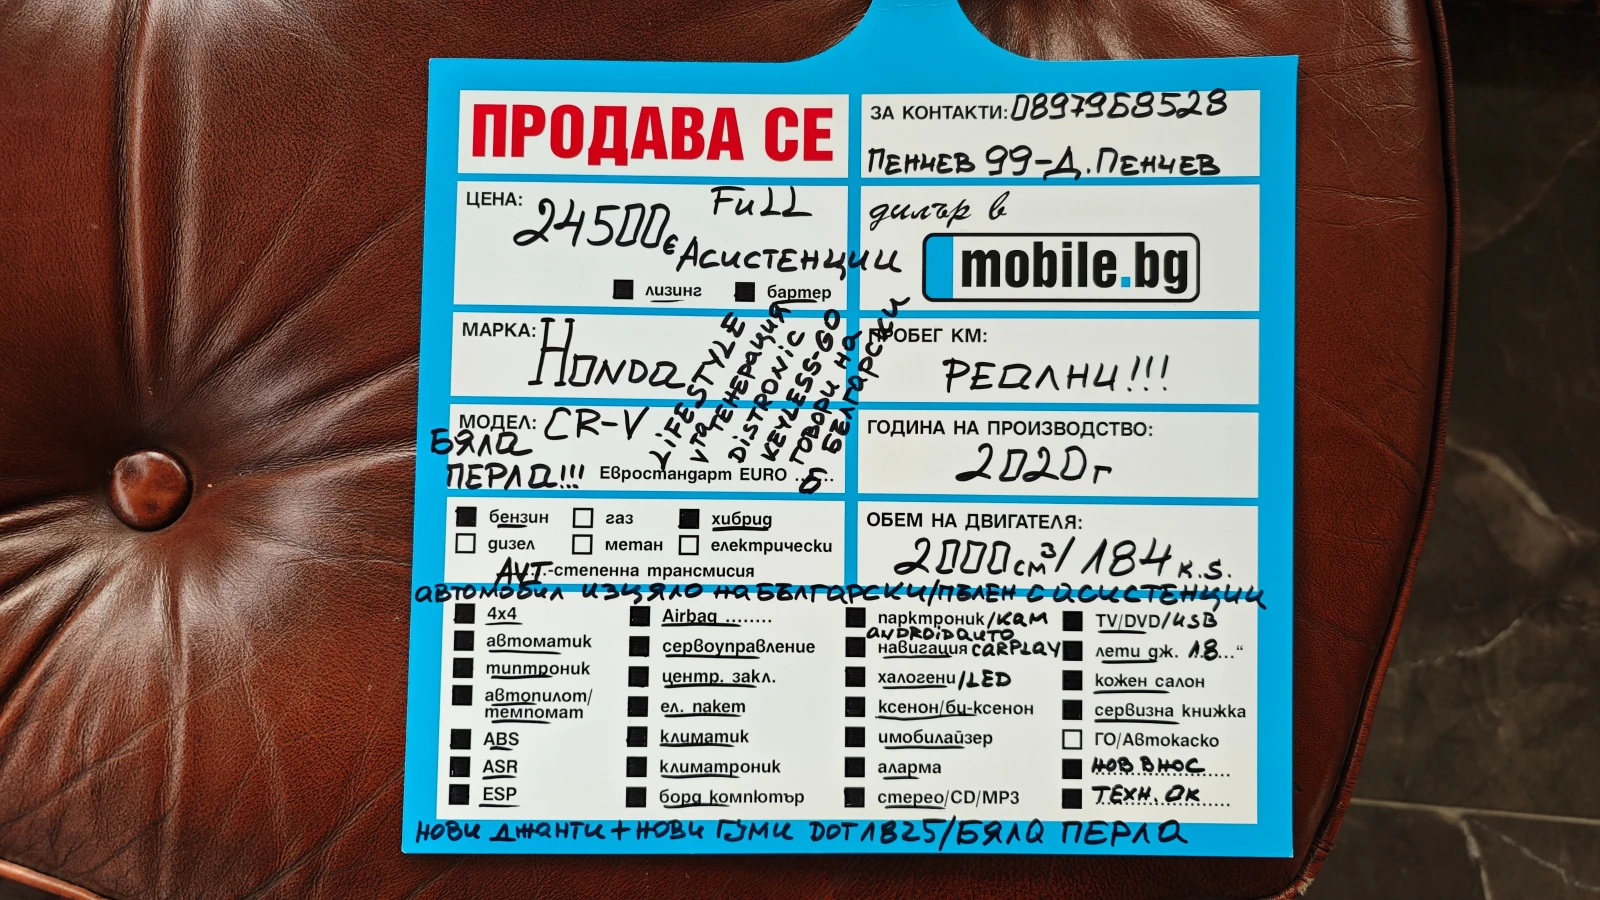 ПРОДАВА СЕ
ЗА КОНТАКТИ: 0897968528
ПЕНЧЕВ 99-Д.ПЕНЧЕВ
ЦЕНА: 24500€
FuLL
АСИСТЕНЦИИ
лизинг бартер
дилър в
mobile.bg
МАРКА: HONDa
ПРОБЕГ КМ:
РЕАЛНИ!!!
LIFESTYLE
Vта ГЕНЕРАЦИЯ
DiSTRONiC
KEYLESS-GO
ГОВОРИ НА
БЕЛГАРСКИ
МОДЕЛ: CR-V
БЯЛА
ПЕРЛА!!!
Евростандарт EURO ..6..
ГОДИНА НА ПРОИЗВОДСТВО:
2020г
бензин газ хибрид
дизел метан електрически
АVТ-степенна трансмисия
ОБЕМ НА ДВИГАТЕЛЯ:
2000см³/184 к.s.
автомобил изцяло на БЪЛГАРСКИ/ПЪЛЕН С АСИСТЕНЦИИ
4x4
автоматик
типтроник
автопилот/
темпомат
ABS
ASR
ESP
Airbag ........
сервоуправление
центр. закл.
ел. пакет
климатик
климатроник
борд компютър
парктроник/КАМ
ANDROiDAUTO
навигация CARPLAY
халогени/LED
ксенон/би-ксенон
имобилайзер
аларма
стерео/CD/MP3
TV/DVD/USB
лети дж. 18...“
кожен салон
сервизна книжка
ГО/Автокаско
НОВ ВНОС
ТЕХН. ОК
НОВИ ДЖАНТИ+НОВИ ГУМИ DOT1825/БЯЛА ПЕРЛА